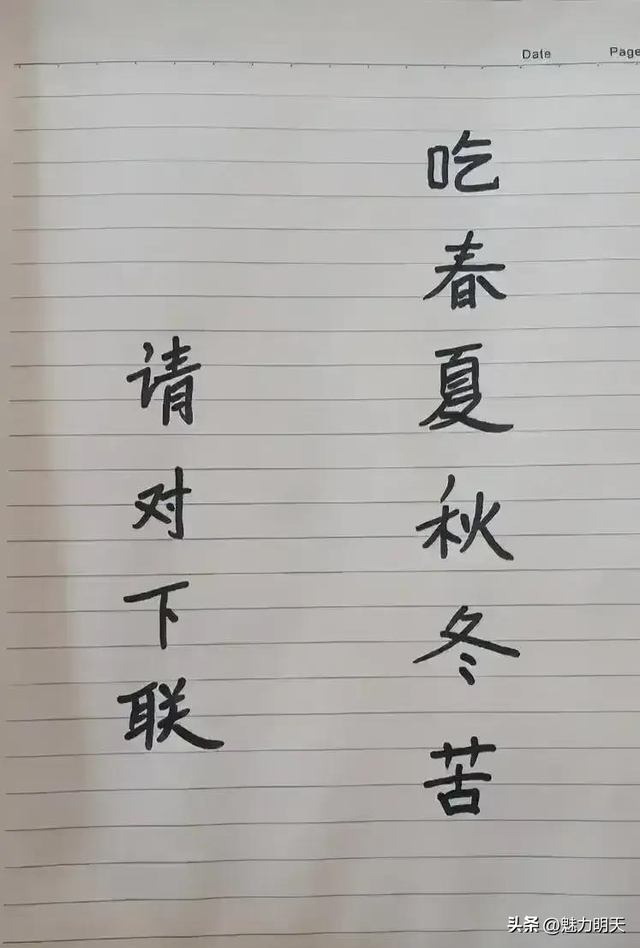 Date Page
吃春夏秋冬苦
请对下联
头条 @魅力明天